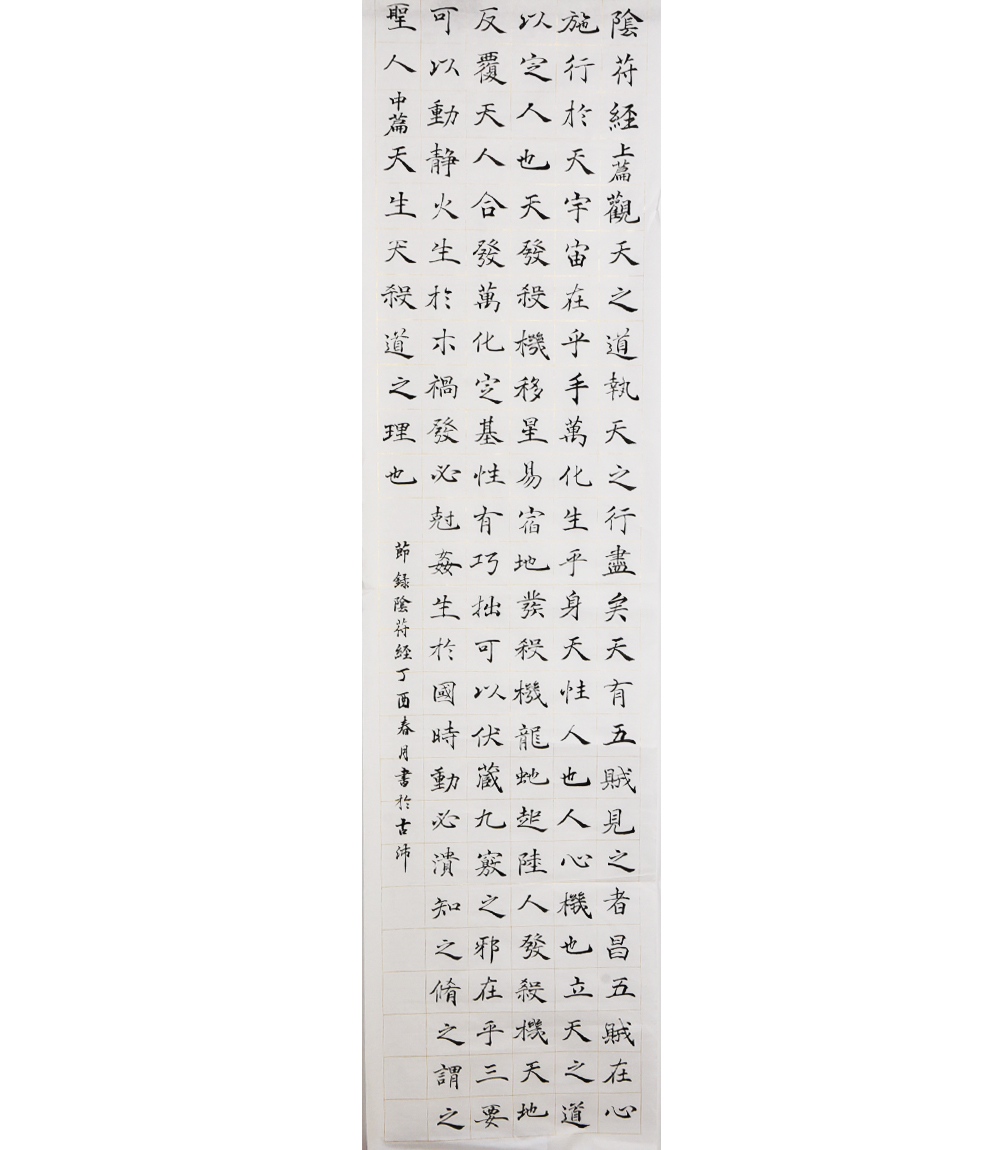 陰符經上篇觀天之道執天之行盡矣天有五賊見之者昌五賊在心
施行於天宇宙在乎手萬化生乎身天性人也人心機也立天之道
以定人也天發殺機移星易宿地發殺機龍虵起陸人發殺機天地
反覆天人合發萬化定基性有巧拙可以伏藏九竅之邪在乎三要
可以動靜火生於木禍發必尅姦生於國時動必潰知之脩之謂之
聖人中篇天生天殺道之理也
節録陰符經丁酉春月書於古沛